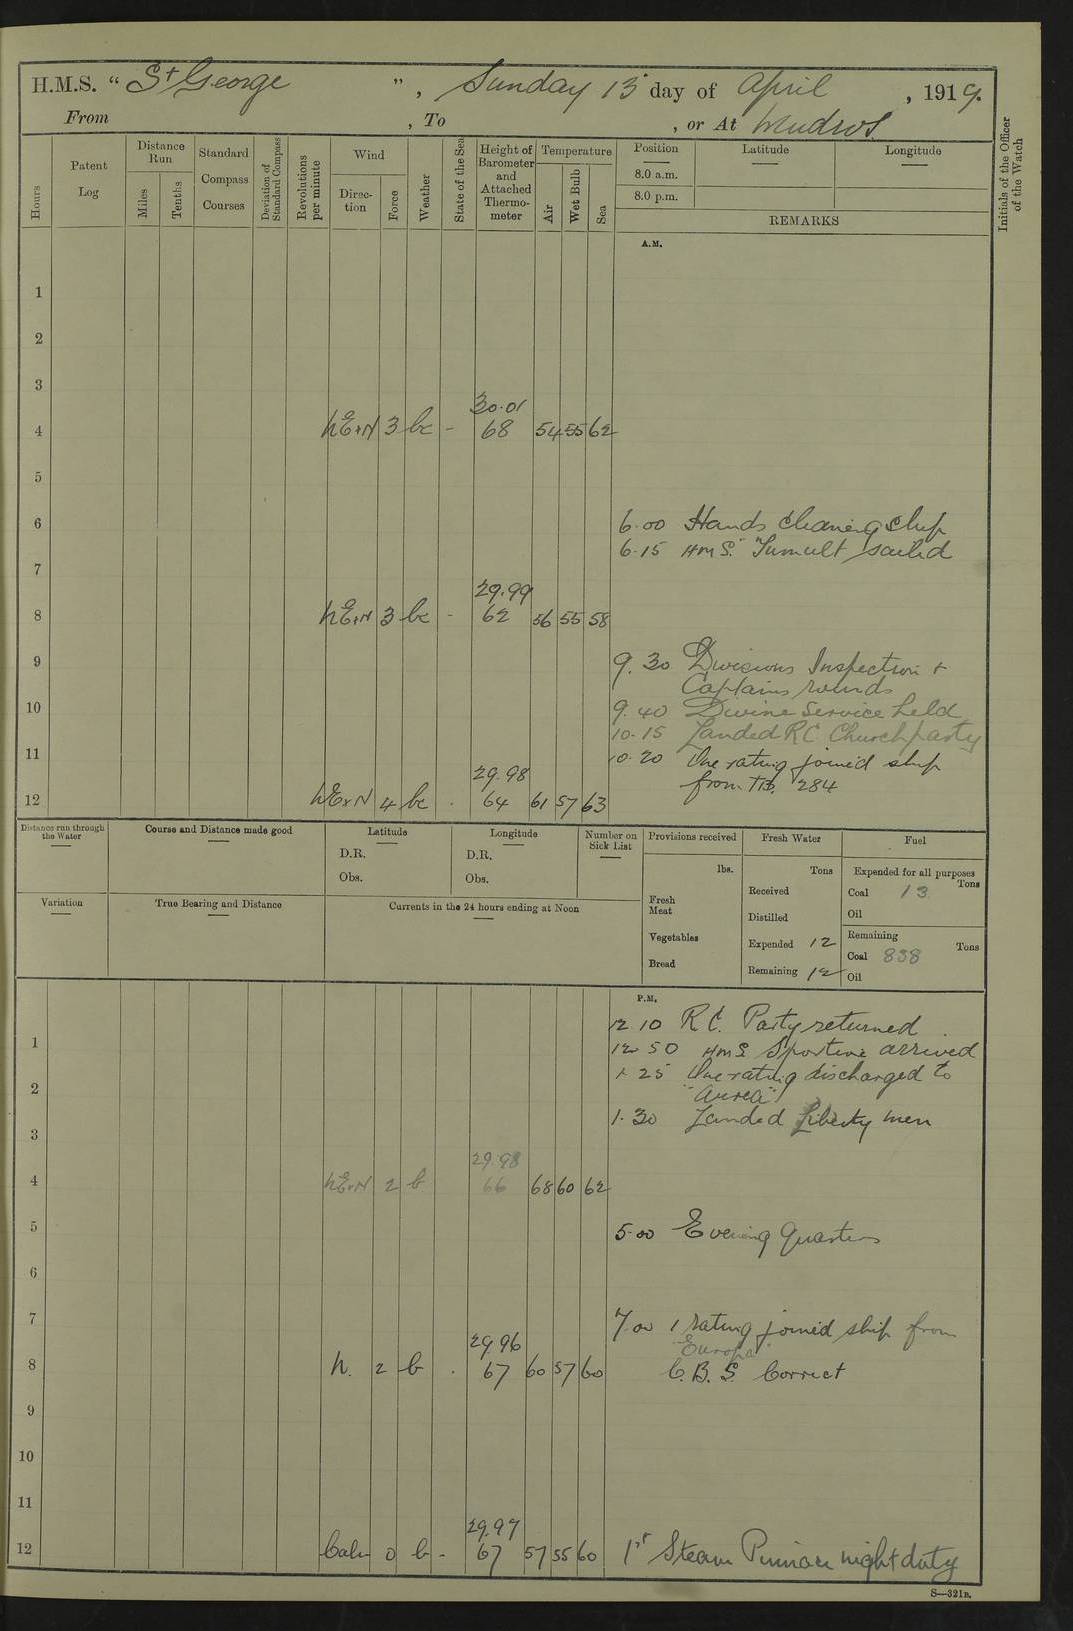 H.M.S. “ St George ” , Sunday 13 day of April , 1919.
From , To , or At Mudros
Hours
Patent Log
Distance Run
Miles
Tenths
Standard Compass Courses
Deviation of Standard Compass
Revolutions per minute
Wind
Direction
Force
Weather
State of the Sea
Height of Barometer and Attached Thermometer
Temperature
Air
Wet Bulb
Sea
Position
8.0 a.m.
8.0 p.m.
Latitude
Longitude
REMARKS
Initials of the Officer of the Watch
A.M.
1
2
3
30.01
4 NExN 3 bc - 68 54 55 62
5
6 6.00 Hands cleaning ship
6.15 HMS "Tumult sailed
7
29.99
8 NExN 3 bc - 62 56 55 58
9 9.30 Divisions Inspection +
Captains rounds
10 9.40 Divine Service held
10.15 Landed RC Church party
11 10.20 One rating joined ship
29.98 from TB. 284
12 NExN 4 bc . 64 61 57 63
Distance run through the Water
Course and Distance made good
Latitude
D.R.
Obs.
Longitude
D.R.
Obs.
Number on Sick List
Provisions received
lbs.
Fresh Meat
Vegetables
Bread
Fresh Water
Tons
Received
Distilled
Expended 12
Remaining 12
Fuel
Expended for all purposes
Tons
Coal 13
Oil
Remaining
Tons
Coal 838
Oil
Variation
True Bearing and Distance
Currents in the 24 hours ending at Noon
P.M.
12 10 R C. Party returned
1 12 50 HMS Sportive arrived
1 25 One rating discharged to
2 "
1.30 Landed Liberty men
3
29.98
4 NExN 2 b 66 68 60 62
5 5.00 Evening Quarters
6
7 7.00 1 rating joined ship from
29.96 Europa"
8 N. 2 b . 67 60 57 60 C. B. S. Correct
9
10
11
29.97
12 Calm 0 b - 67 57 55 60 1st Steam Pinnace night duty
S—321B.